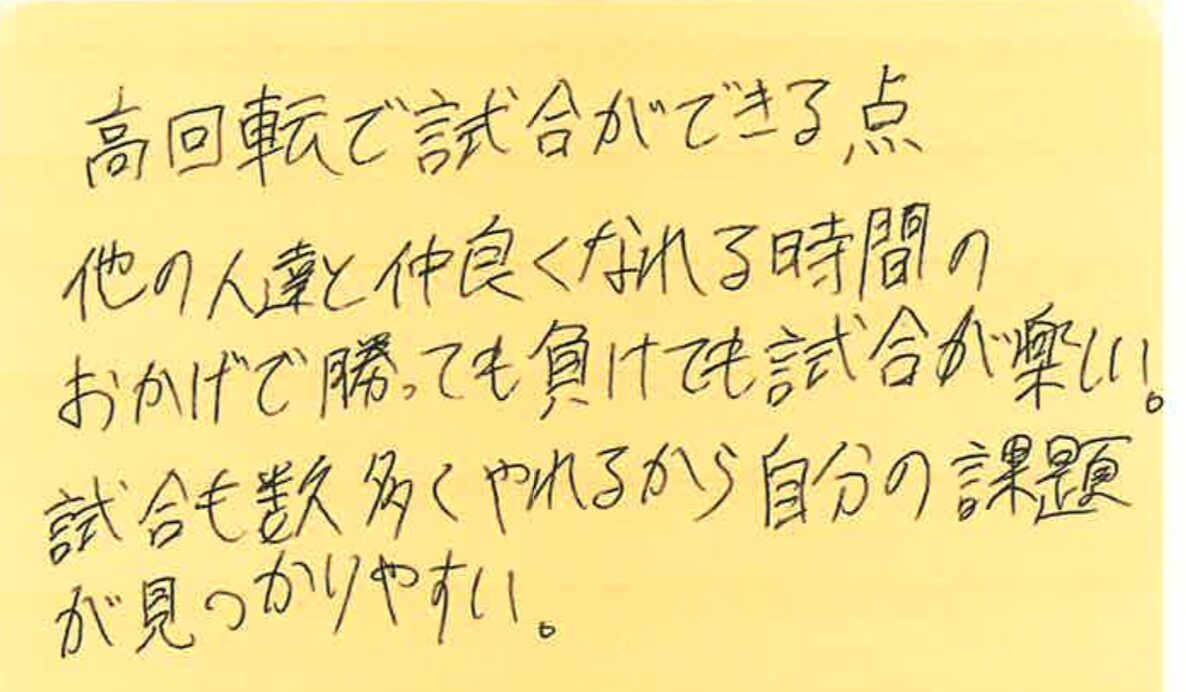 高回転で試合ができる点
他の人達と仲良くなれる時間の
おかげで勝っても負けても試合が楽しい。
試合も数多くやれるから自分の課題
が見つかりやすい。